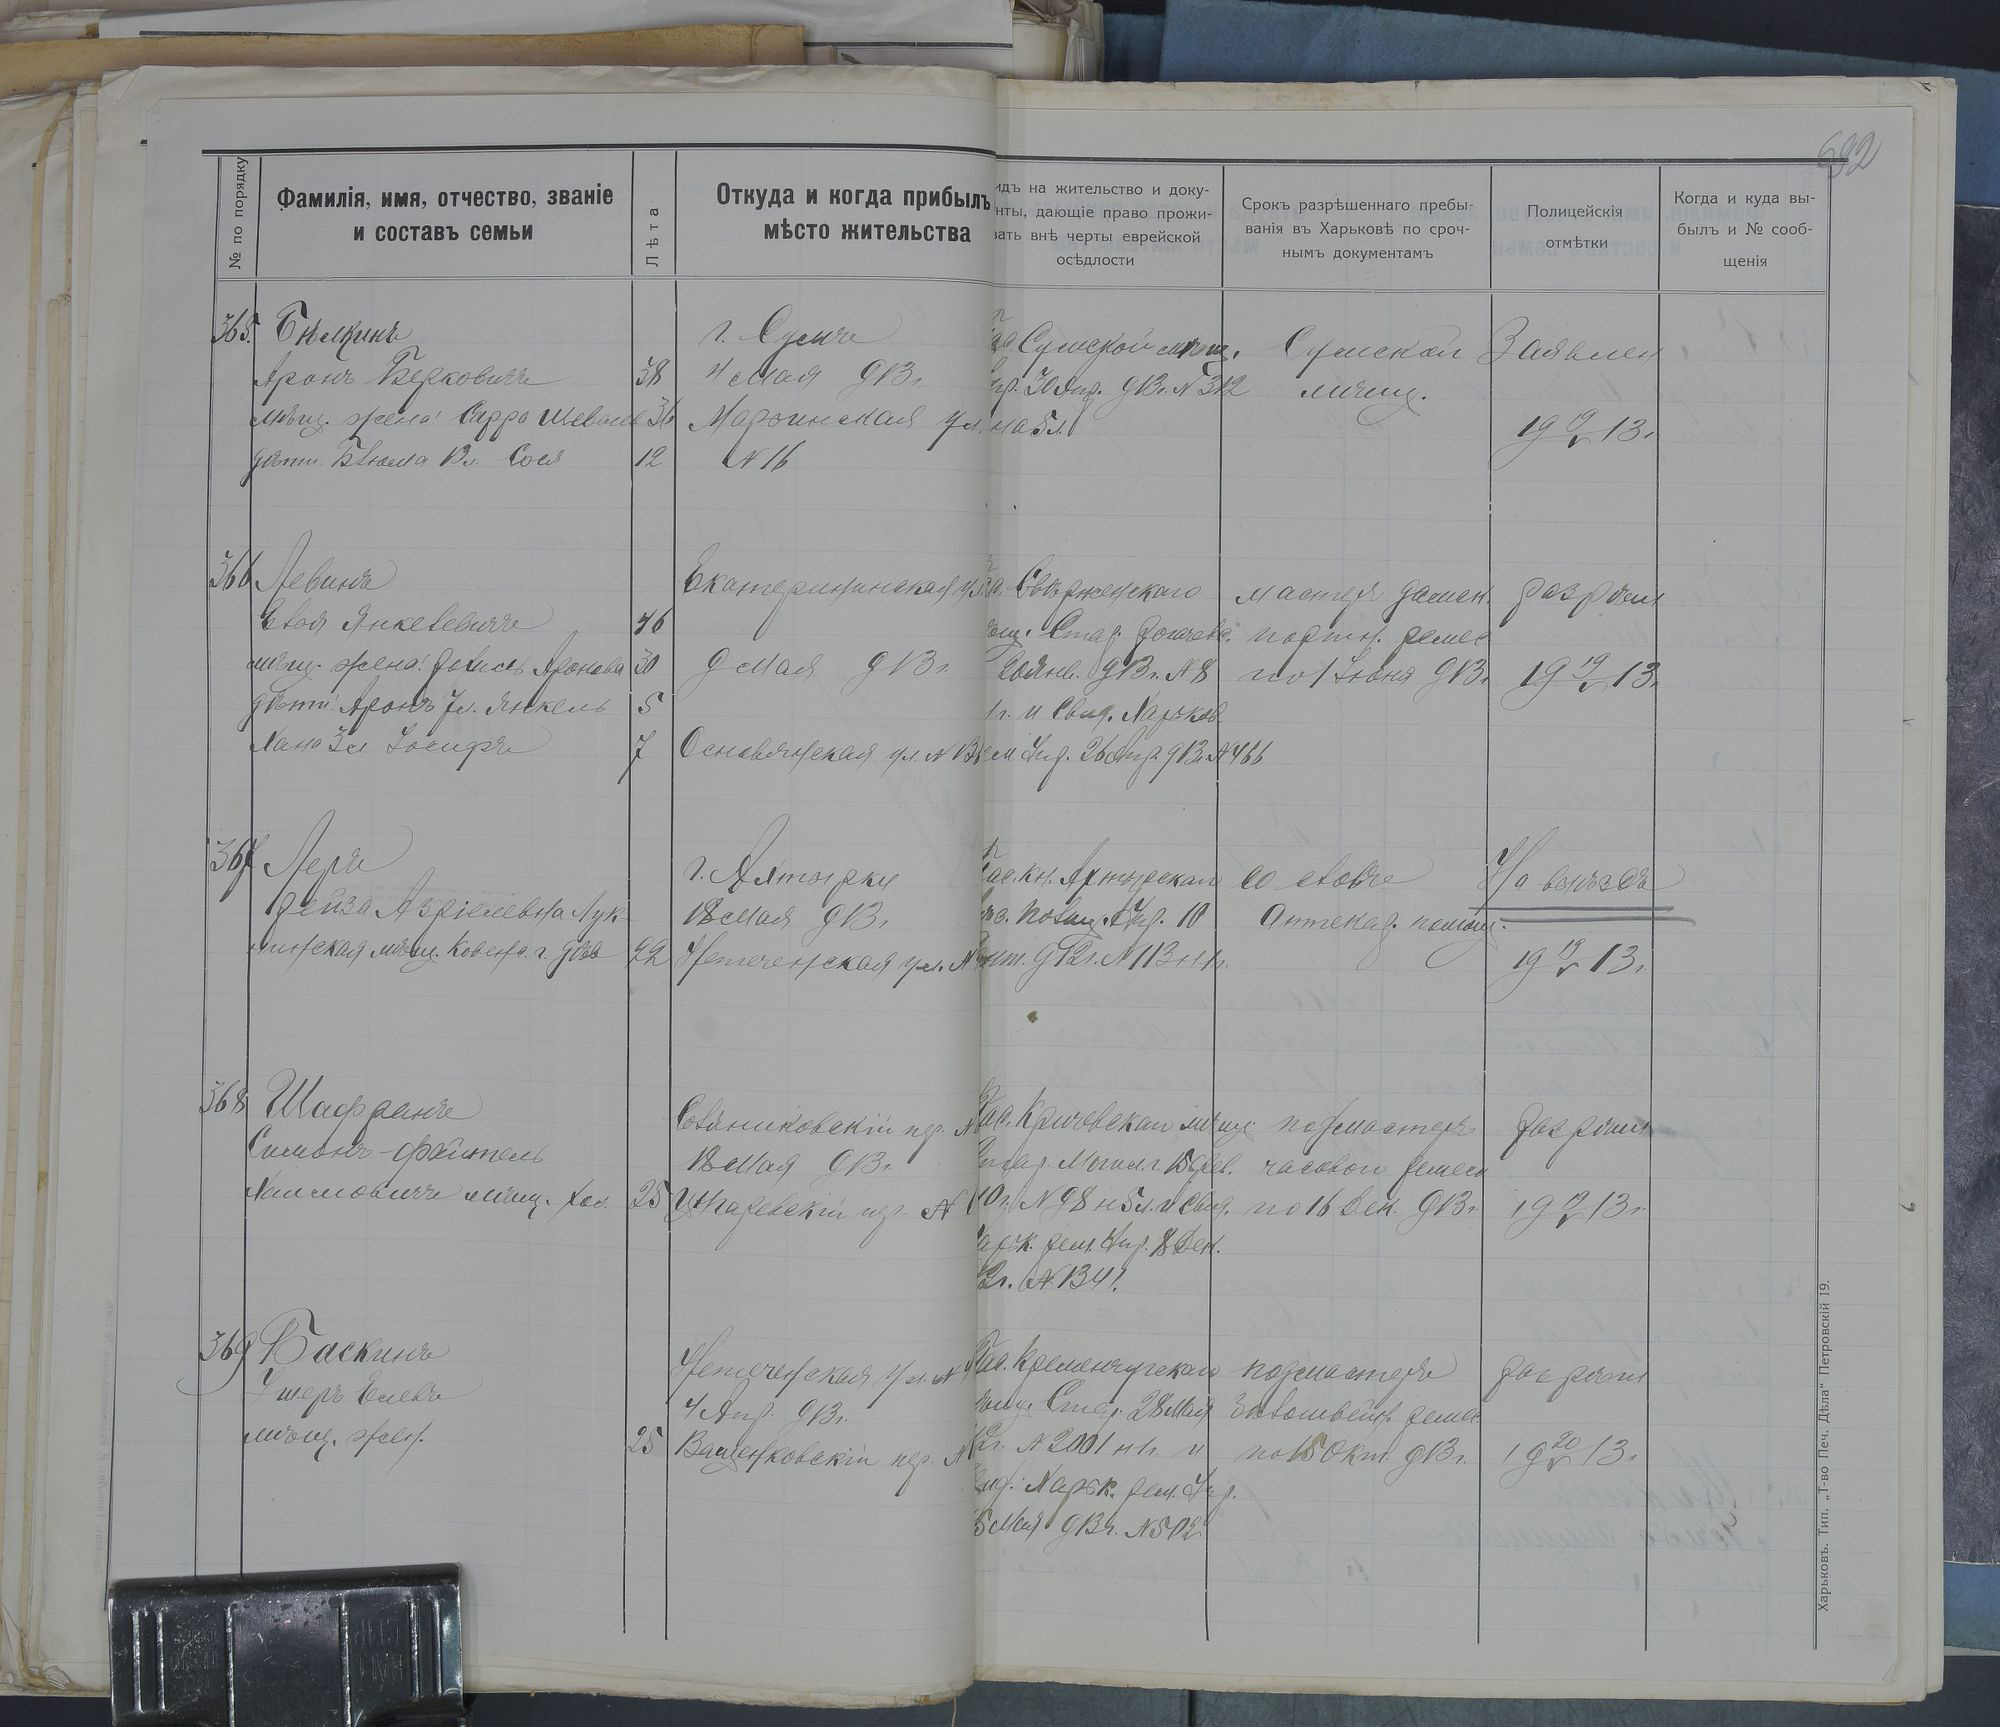 632
№ по порядку
Фамилія, имя, отчество, званіе
и составъ семьи
Лѣта
Откуда и когда прибылъ
мѣсто жительства
идъ на жительство и доку-
нты, дающіе право прожи-
вать внѣ черты еврейской
осѣдлости
Срокъ разрѣшеннаго пребы-
ванія въ Харьковѣ по сроч-
нымъ документамъ
Полицейскія
отмѣтки
Когда и куда вы-
былъ и № сооб-
щенія
365. Бѣлкинъ
Аронъ Берковичъ 38
мѣщ. жена: Сарра 36
дѣти: 13л. Сося 12
г. Сумы
4 Мая 913г.
Мароинская ул.
№ 16
Сумской мѣщ.
30 Апр. 913г. № 312
на 5л.
Сумской
мѣщ.
Заявлен
19 19/V 13г.
366 Левинъ
Евоя Янкелевичъ 46
мѣщ. жена: Аронова 30
дѣти: Аронъ 7л. Янкель 5
Хана 3л. Іосифъ 7
Екатерининская ул.
9 Мая 913г.
Основянская ул. № 13
Свѣрженскаго
мѣщ. Стар.
913г. № 8
1г. и Свид. Харьков
рем Упр. 26 Апр. 913г. № 466
мастеръ дамск.
портн. ремес
по 1 Іюня 913г.
разрѣш
19 19/V 13г.
367 Леръ
Рейза Азріелевна Лук-
нинская мѣщ. Ковенс. г. дѣв 22
г. Ахтырки
18 Мая 913г.
Нетеченская ул. №
Пас. кн. Ахтырскаго
Упр. 10
912г. № 113 н1г.
Аптекар. помощ.
На выѣздъ
19 19/V 13г.
368 Шафранъ
Симонъ-Файтель
Хаимовичъ мѣщ. хол. 25
пер. №
18 Мая 913г.
пер. №
Пас. Кричевскаго мѣщ
Стар. Могил. г. 15 Фев.
10г. № 98 н5л. и Свид.
Харьк. рем. Упр. 8 Дек.
12г. № 1341.
подмастеръ
часовой ремесл
по 16 Дек. 913г.
разрѣш
19 19/V 13г.
369 Баскинъ
мѣщ. жен. 25
Нетеченская ул. №
4 Апр. 913г.
Ващенковскій пер. №
Пас. Кременчугскаго
мѣщ. Стар. 28 Мая
12г. № 2001 н1г. и
Свид. Харьк. рем. Упр.
15 Мая 913г. № 502
подмастеръ
ремес
по 15 Окт. 913г.
разрѣш
19 20/V 13г.
Харьковъ. Тип. „Т-во Печ. Дѣла“ Петровскій 19.